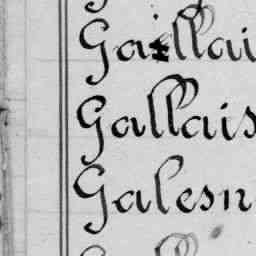 Gaillai
Gallais
Galesn